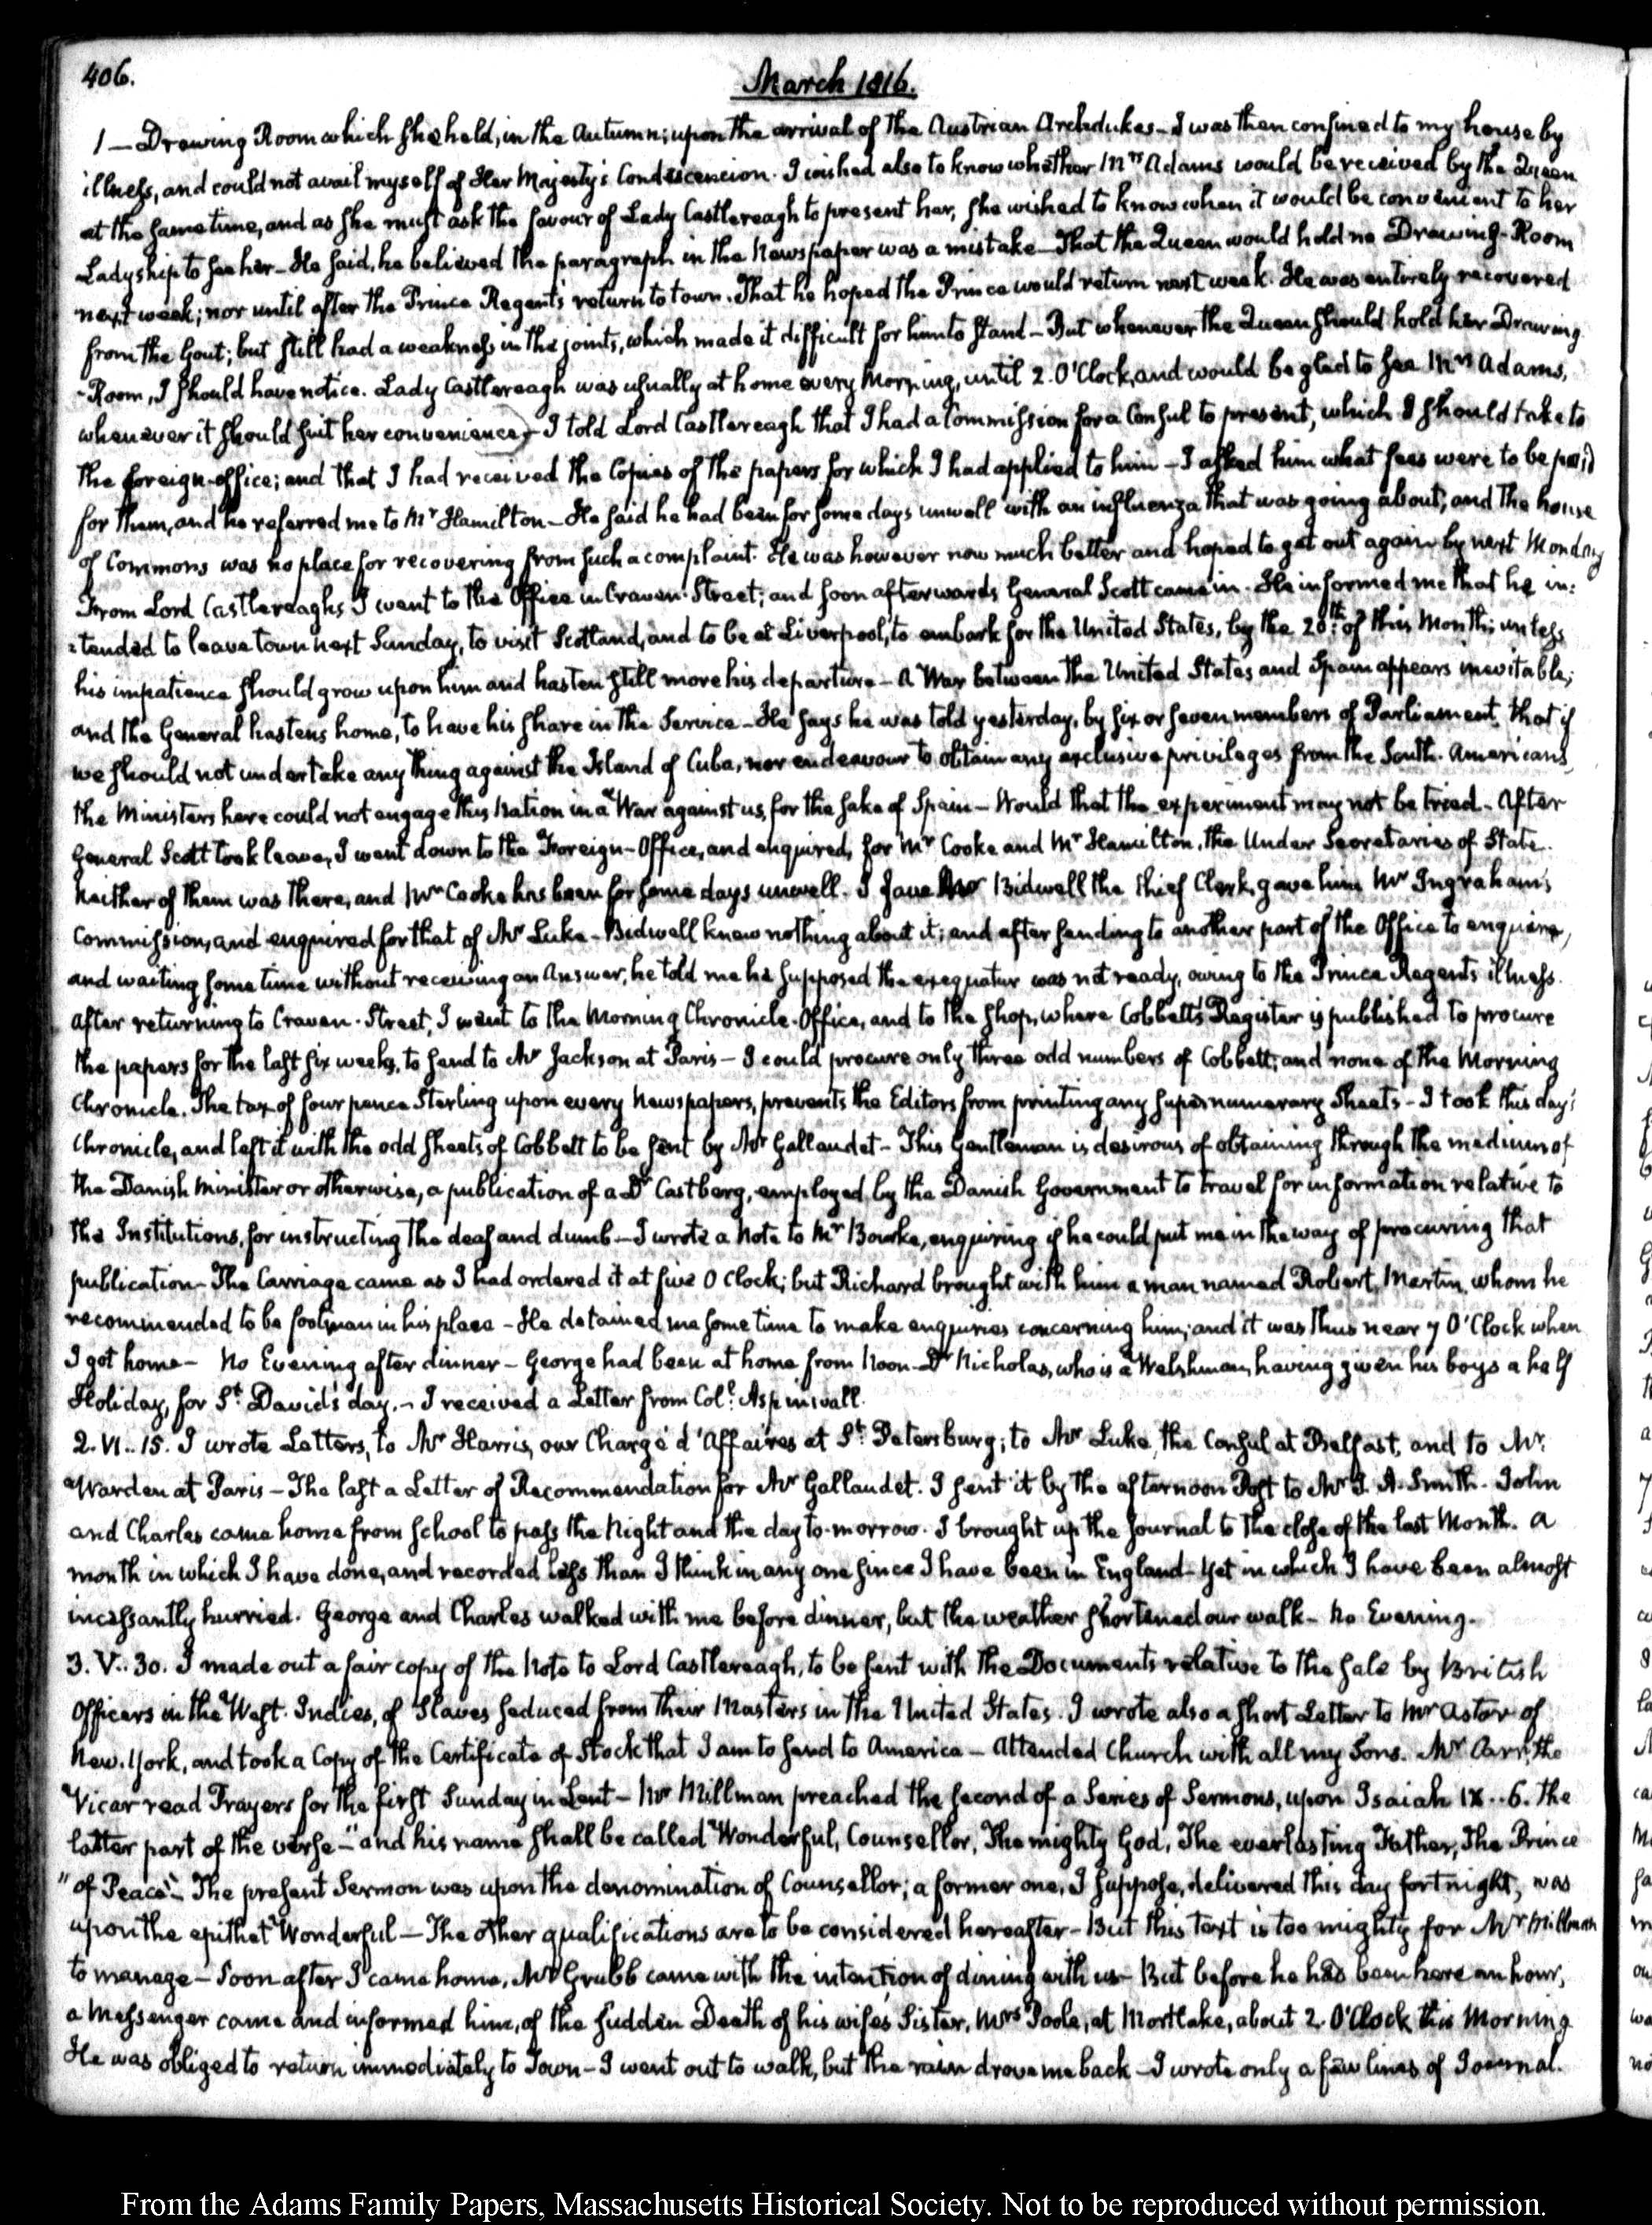 406.
March 1816.
1 — Drawing Room which she held, in the Autumn; upon the arrival of the Austrian Archdukes – I was then confined to my house by
illness, and could not avail myself of Her Majesty's Condescencion. I wished also to know whether Mrs Adams would be received by the Queen
at the same time, and as she must ask the favour of Lady Castlereagh to present her, she wished to know when it would be convenient to her
Ladyship to see her – He said, he believed the paragraph in the Newspaper was a mistake – That the Queen would hold no Drawing-Room
next week; nor until after the Prince Regent's return to town. That he hoped the Prince would return next week. He was entirely recovered
from the Gout; but still had a weakness in the joints, which made it difficult for him to stand – But whenever the Queen should hold her Drawing
-Room, I should have notice. Lady Castlereagh was usually at home every Morning, until 2. O'Clock, and would be glad to see Mrs Adams,
whenever it should suit her convenience – I told Lord Castlereagh that I had a Commission for a Consul to present, which I should take to
the foreign-office; and that I had received the Copies of the papers for which I had applied to him – I asked him what fees were to be paid
for them, and he referred me to Mr Hamilton – He said he had been for some days unwell with an influenza that was going about; and the house
of Commons was no place for recovering from such a complaint. He was however now much better and hoped to get out again by next Monday
From Lord Castlereaghs I went to the Office in Craven-Street; and soon afterwards General Scott came in. He informed me that he in:
:tended to leave town next Sunday, to visit Scotland, and to be at Liverpool, to embark for the United States, by the 20th. of this Month; unless
his impatience should grow upon him and hasten still more his departure – A War between the United States and Spain appears inevitable;
and the General hastens home, to have his share in the Service – He says he was told yesterday, by six or seven members of Parliament, that if
we should not undertake any thing against the Island of Cuba, nor endeavour to obtain any exclusive privileges from the South-Americans,
the Ministers here could not engage this Nation in a War against us, for the sake of Spain – Would that the experiment may not be tried – After
General Scott took leave, I went down to the Foreign-Office, and enquired, for Mr Cooke and Mr Hamilton, the Under Secretaries of State.
Neither of them was there, and Mr Cooke has been for some days unwell. I gave Mr Bidwell the Chief Clerk, gave him Mr Ingraham's
Commission, and enquired for that of Mr Luke – Bidwell knew nothing about it; and after sending to another part of the Office to enquire,
and waiting some time without receiving an Answer, he told me he supposed the exequatur was not ready, owing to the Prince Regents illness.
After returning to Craven-Street, I went to the Morning Chronicle-Office, and to the shop, where Cobbett's Register is published to procure
the papers for the last six weeks, to send to Mr Jackson at Paris – I could procure only three odd numbers of Cobbett; and none of the Morning
Chronicle. The tax of four pence Sterling upon every Newspapers, prevents the Editors from printing any supernumerary Sheets – I took this day's
Chronicle, and left it with the odd sheets of Cobbett to be sent by Mr Gallaudet – This Gentleman is desirous of obtaining through the medium of
the Danish Minister or otherwise, a publication of a Dr Castberg, employed by the Danish Government to travel for information relative to
the Institutions, for instructing the deaf and dumb – I wrote a Note to Mr Bourke, enquiring if he could put me in the way of procuring that
publication – The Carriage came as I had ordered it at five O Clock; but Richard brought with him a man named Robert Martin, whom he
recommended to be footman in his place – He detained me some time to make enquiries concerning him; and it was thus near 7 O'Clock when
I got home – No Evening after dinner – George had been at home from Noon – Dr Nicholas, who is a Welshman, having given his boys a half
Holiday, for St. David's day. – I received a Letter from Coll. Aspinwall.
2. VI.. 15. I wrote Letters, to Mr Harris, our Chargé d'Affaires at St. Petersburg; to Mr Luke, the Consul at Belfast, and to Mr.
Warden at Paris – The last a Letter of Recommendation for Mr Gallaudet. I sent it by the afternoon Post to Mr J. A. Smith. John
and Charles came home from School to pass the Night and the day to-morrow. I brought up the Journal to the close of the last Month. A
month in which I have done, and recorded less than I think in any one since I have been in England – Yet in which I have been almost
incessantly hurried. George and Charles walked with me before dinner, but the weather shortened our walk – No Evening.
3. V.. 30. I made out a fair copy of the Note to Lord Castlereagh, to be sent with the Documents relative to the sale by British
Officers in the West-Indies, of Slaves seduced from their Masters in the United States. I wrote also a short Letter to Mr Astor of
New-York, and took a Copy of the Certificate of Stock that I am to send to America – Attended Church with all my Sons. Mr Carr, the
Vicar read Prayers for the first Sunday in Lent – Mr Millman preached the second of a Series of Sermons, upon Isaiah IX..6. the
latter part of the verse – "and his name shall be called Wonderful, Counsellor, The mighty God, The everlasting Father, The Prince
"of Peace" – The present Sermon was upon the denomination of Counsellor; a former one, I suppose, delivered this day fortnight, was
upon the epithet Wonderful – The other qualifications are to be considered hereafter – But this text is too mighty for Mr Millman
to manage – Soon after I came home, Mr Grubb came with the intention of dining with us – But before he had been here an hour,
a Messenger came and informed him, of the sudden Death of his wife's Sister, Mrs Poole, at Mortlake, about 2. O'Clock this Morning
He was obliged to return immediately to Town – I went out to walk, but the rain drove me back – I wrote only a few lines of Journal.
From the Adams Family Papers, Massachusetts Historical Society. Not to be reproduced without permission.